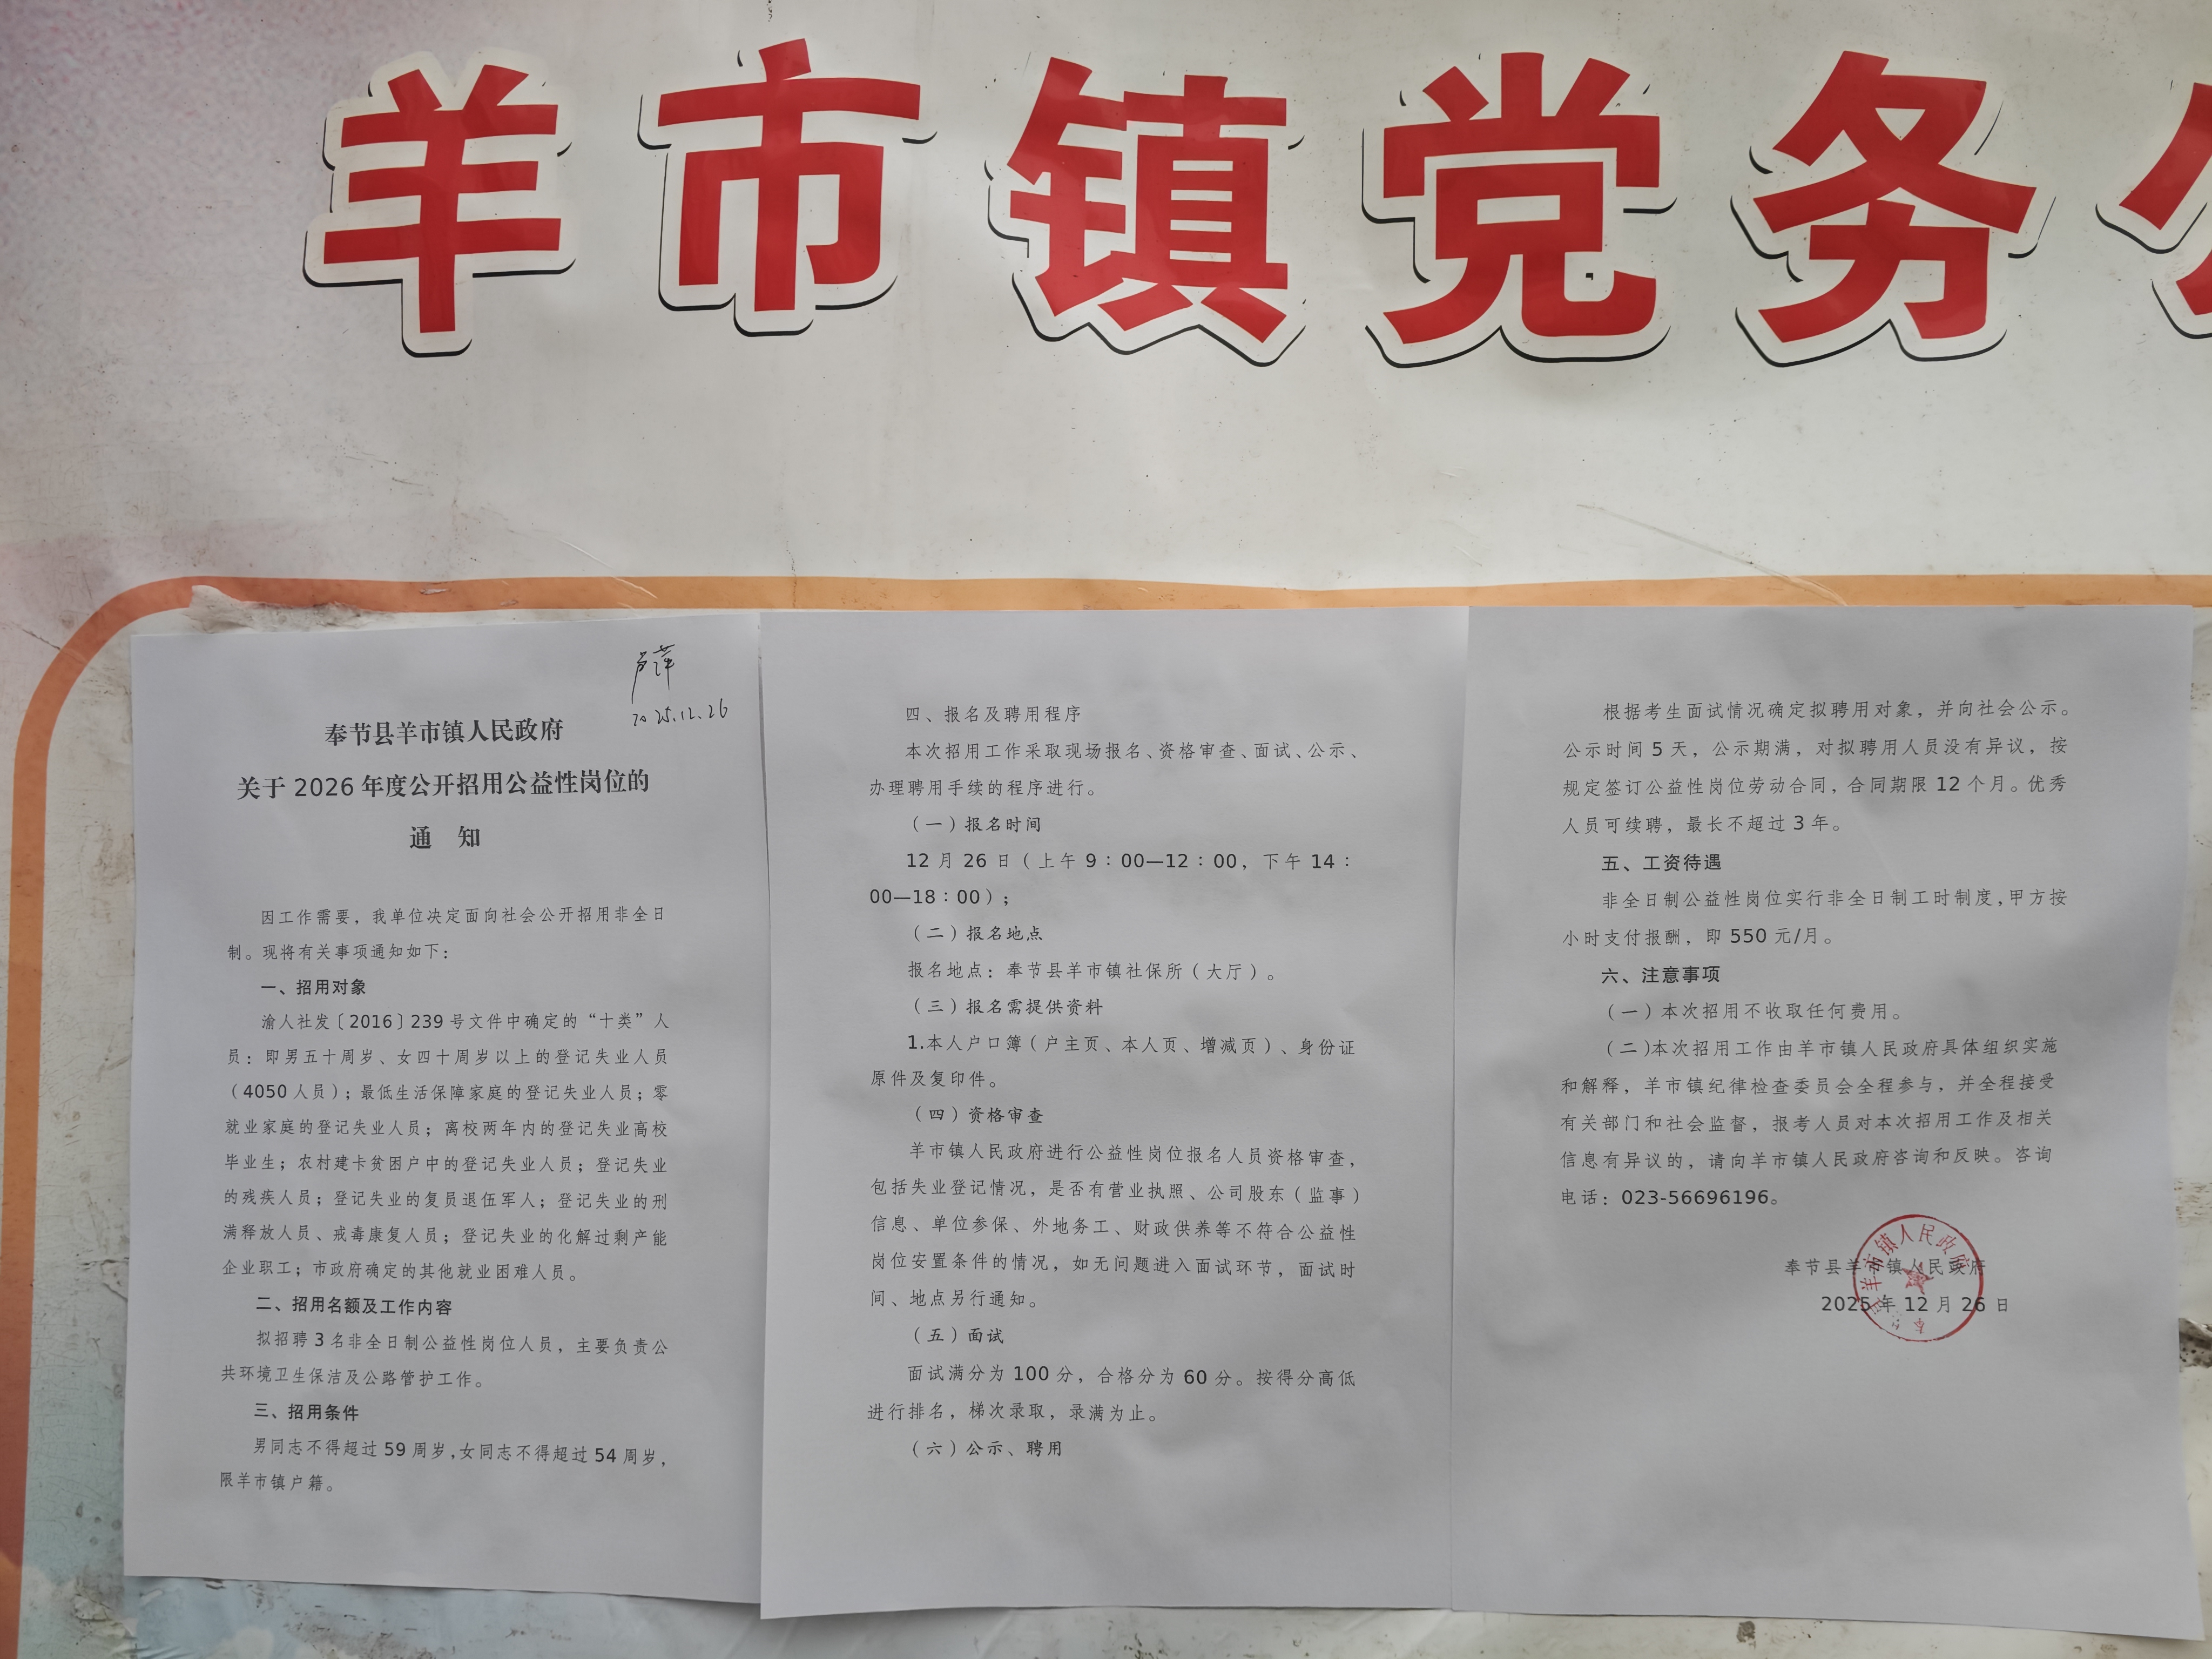 羊市镇党务
卢萍
2025.12.26
奉节县羊市镇人民政府
关于 2026 年度公开招用公益性岗位的
通 知
因工作需要，我单位决定面向社会公开招用非全日
制。现将有关事项通知如下：
一、招用对象
渝人社发〔2016〕239 号文件中确定的“十类”人
员：即男五十周岁、女四十周岁以上的登记失业人员
（4050 人员）；最低生活保障家庭的登记失业人员；零
就业家庭的登记失业人员；离校两年内的登记失业高校
毕业生；农村建卡贫困户中的登记失业人员；登记失业
的残疾人员；登记失业的复员退伍军人；登记失业的刑
满释放人员、戒毒康复人员；登记失业的化解过剩产能
企业职工；市政府确定的其他就业困难人员。
二、招用名额及工作内容
拟招聘 3 名非全日制公益性岗位人员，主要负责公
共环境卫生保洁及公路管护工作。
三、招用条件
男同志不得超过 59 周岁,女同志不得超过 54 周岁，
限羊市镇户籍。
四、报名及聘用程序
本次招用工作采取现场报名、资格审查、面试、公示、
办理聘用手续的程序进行。
（一）报名时间
12 月 26 日（上午 9：00—12：00，下午 14：
00—18：00）；
（二）报名地点
报名地点：奉节县羊市镇社保所（大厅）。
（三）报名需提供资料
1.本人户口簿（户主页、本人页、增减页）、身份证
原件及复印件。
（四）资格审查
羊市镇人民政府进行公益性岗位报名人员资格审查，
包括失业登记情况，是否有营业执照、公司股东（监事）
信息、单位参保、外地务工、财政供养等不符合公益性
岗位安置条件的情况，如无问题进入面试环节，面试时
间、地点另行通知。
（五）面试
面试满分为 100 分，合格分为 60 分。按得分高低
进行排名，梯次录取，录满为止。
（六）公示、聘用
根据考生面试情况确定拟聘用对象，并向社会公示。
公示时间 5 天，公示期满，对拟聘用人员没有异议，按
规定签订公益性岗位劳动合同，合同期限 12 个月。优秀
人员可续聘，最长不超过 3 年。
五、工资待遇
非全日制公益性岗位实行非全日制工时制度,甲方按
小时支付报酬，即 550 元/月。
六、注意事项
（一）本次招用不收取任何费用。
（二）本次招用工作由羊市镇人民政府具体组织实施
和解释，羊市镇纪律检查委员会全程参与，并全程接受
有关部门和社会监督，报考人员对本次招用工作及相关
信息有异议的，请向羊市镇人民政府咨询和反映。咨询
电话：023-56696196。
奉节县羊市镇人民政府
2025 年 12 月 26 日